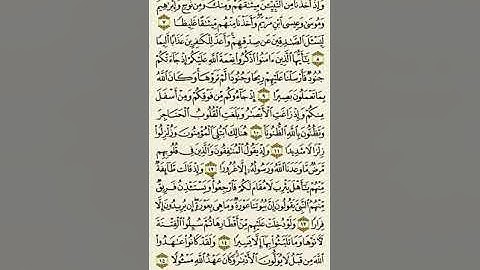 وَإِذْ أَخَذْنَا مِنَ النَّبِيِّينَ مِيثَاقَهُمْ وَمِنكَ وَمِن نُّوحٍ وَإِبْرَاهِيمَ
وَمُوسَى وَعِيسَى ابْنِ مَرْيَمَ وَأَخَذْنَا مِنْهُم مِّيثَاقًا غَلِيظًا
٧ لِّيَسْأَلَ الصَّادِقِينَ عَن صِدْقِهِمْ وَأَعَدَّ لِلْكَافِرِينَ عَذَابًا أَلِيمًا
٨ يَا أَيُّهَا الَّذِينَ آمَنُوا اذْكُرُوا نِعْمَةَ اللَّهِ عَلَيْكُمْ إِذْ جَاءَتْكُمْ
جُنُودٌ فَأَرْسَلْنَا عَلَيْهِمْ رِيحًا وَجُنُودًا لَّمْ تَرَوْهَا وَكَانَ اللَّهُ
بِمَا تَعْمَلُونَ بَصِيرًا ٩ إِذْ جَاءُوكُم مِّن فَوْقِكُمْ وَمِنْ أَسْفَلَ
مِنكُمْ وَإِذْ زَاغَتِ الْأَبْصَارُ وَبَلَغَتِ الْقُلُوبُ الْحَنَاجِرَ
وَتَظُنُّونَ بِاللَّهِ الظُّنُونَا ١٠ هُنَالِكَ ابْتُلِيَ الْمُؤْمِنُونَ وَزُلْزِلُوا
زِلْزَالًا شَدِيدًا ١١ وَإِذْ يَقُولُ الْمُنَافِقُونَ وَالَّذِينَ فِي قُلُوبِهِم
مَّرَضٌ مَّا وَعَدَنَا اللَّهُ وَرَسُولُهُ إِلَّا غُرُورًا ١٢ وَإِذْ قَالَت طَّائِفَةٌ
مِّنْهُمْ يَا أَهْلَ يَثْرِبَ لَا مُقَامَ لَكُمْ فَارْجِعُوا وَيَسْتَأْذِنُ فَرِيقٌ
مِّنْهُمُ النَّبِيَّ يَقُولُونَ إِنَّ بُيُوتَنَا عَوْرَةٌ وَمَا هِيَ بِعَوْرَةٍ إِن يُرِيدُونَ إِلَّا
فِرَارًا ١٣ وَلَوْ دُخِلَتْ عَلَيْهِم مِّنْ أَقْطَارِهَا ثُمَّ سُئِلُوا الْفِتْنَةَ
لَآتَوْهَا وَمَا تَلَبَّثُوا بِهَا إِلَّا يَسِيرًا ١٤ وَلَقَدْ كَانُوا عَاهَدُوا
اللَّهَ مِن قَبْلُ لَا يُوَلُّونَ الْأَدْبَارَ وَكَانَ عَهْدُ اللَّهِ مَسْئُولًا ١٥